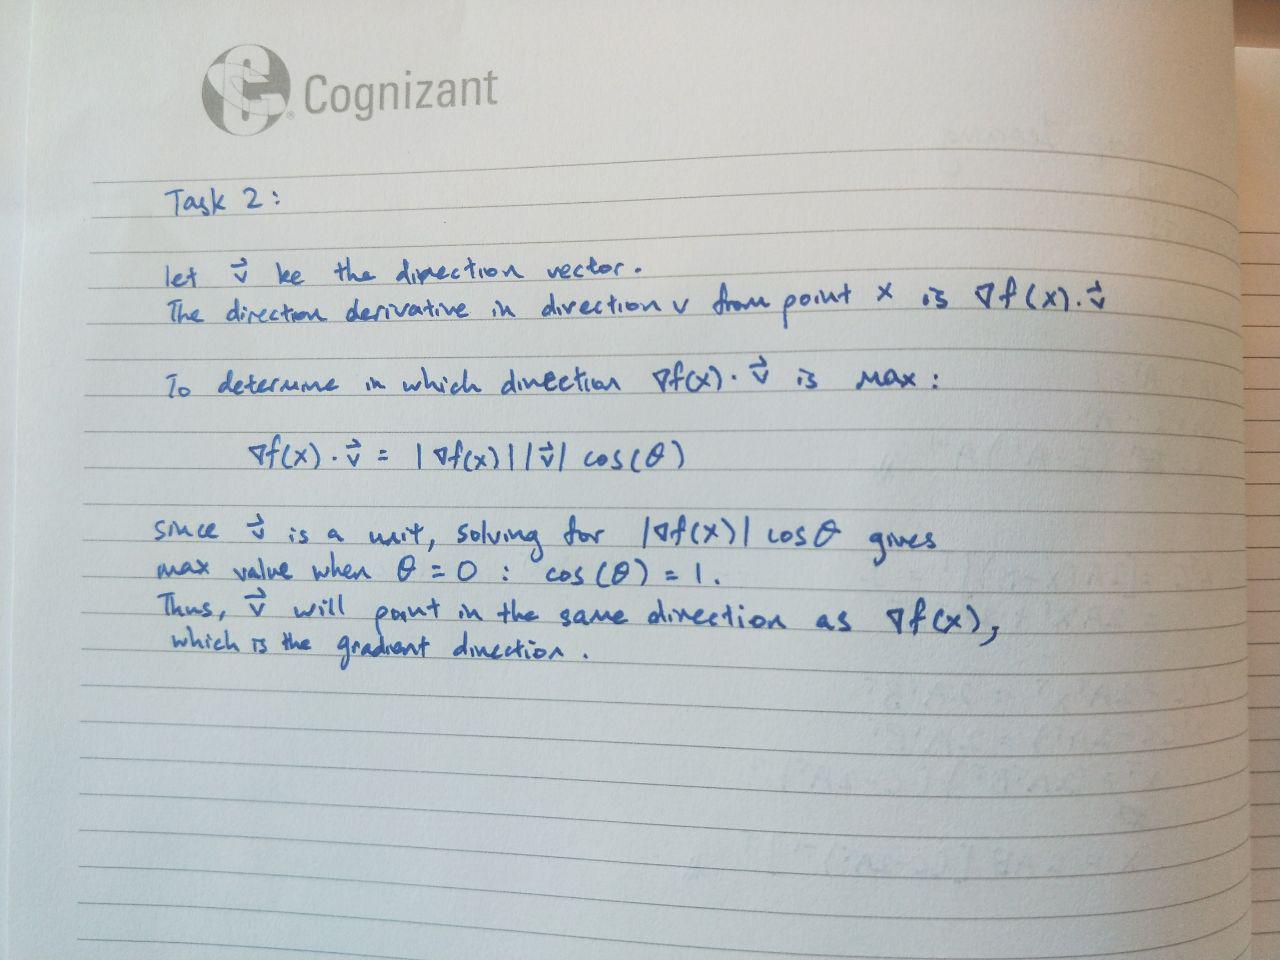 Cognizant
Task 2:
let v⃗ be the direction vector.
The direction derivative in direction v from point x is ∇f(x).v⃗
To determine in which direction ∇f(x).v⃗ is max:
∇f(x).v⃗ = |∇f(x)||v⃗| cos(θ)
since v⃗ is a unit, solving for |∇f(x)| cosθ gives
max value when θ = 0 : cos(θ) = 1.
Thus, v⃗ will point in the same direction as ∇f(x),
which is the gradient direction.